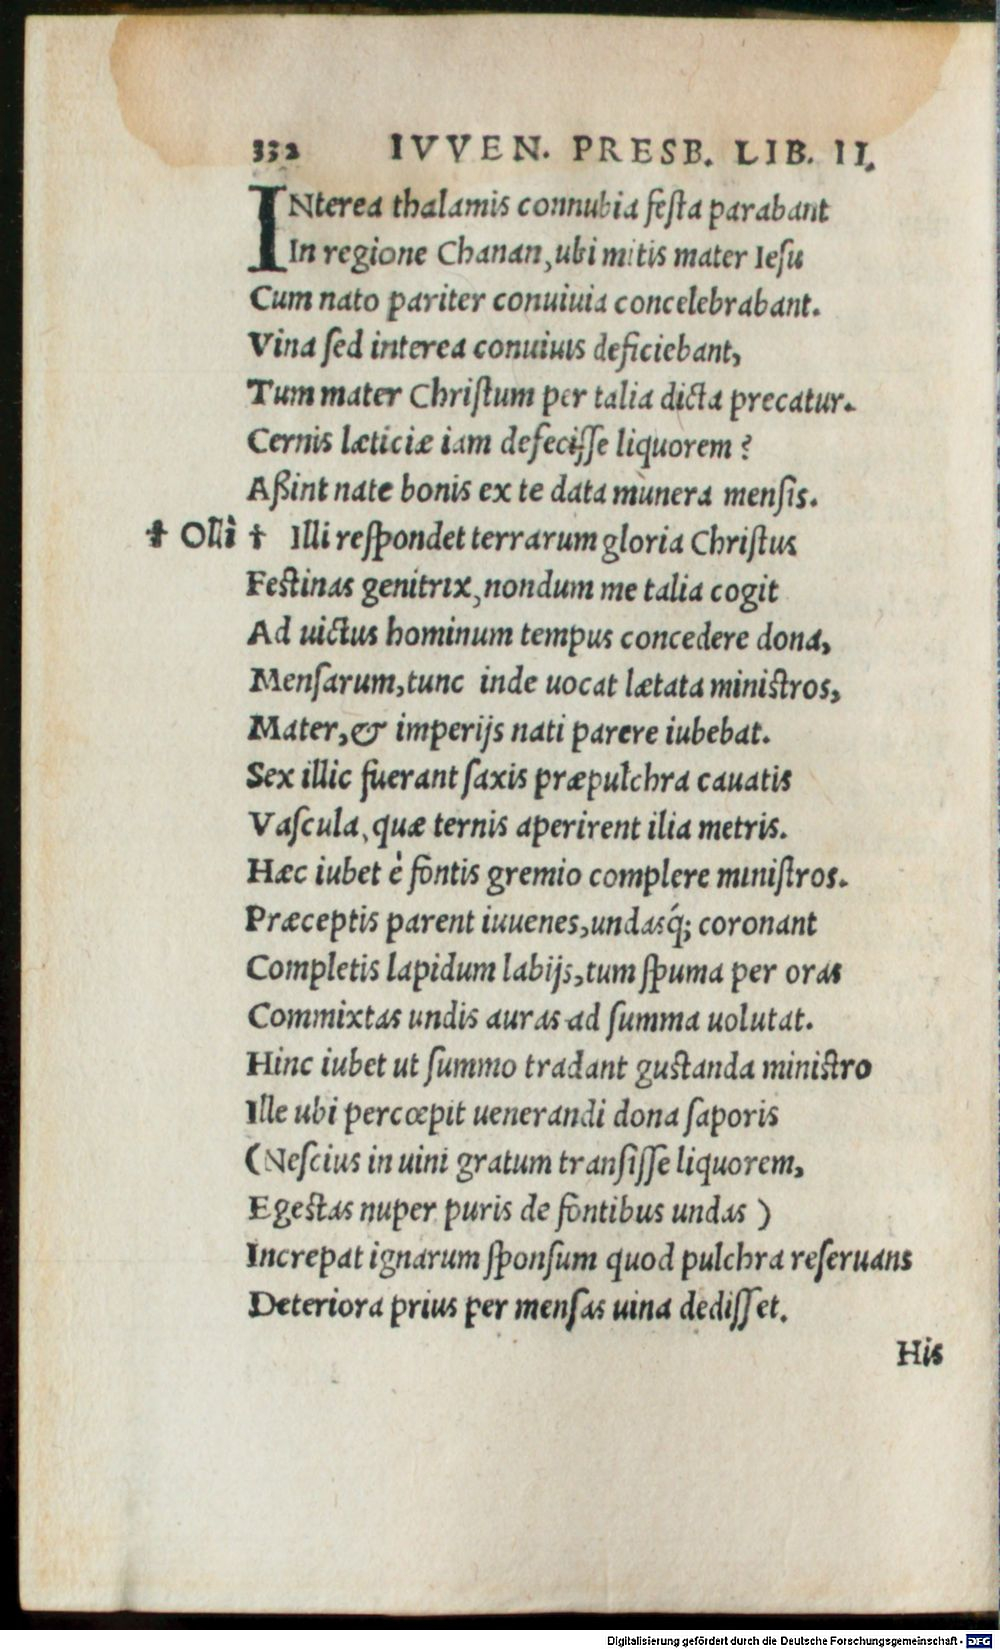 332 IVVEN. PRESB. LIB. II.
INterea thalamis connubia festa parabant
In regione Chanan, ubi mitis mater Iesu
Cum nato pariter conuiuia concelebrabant.
Vina sed interea conuiuis deficiebant,
Tum mater Christum per talia dicta precatur.
Cernis læticiæ iam defecisse liquorem?
Aßint nate bonis ex te data munera mensis.
✝ Ollì ✝ Illi respondet terrarum gloria Christus
Festinas genitrix, nondum me talia cogit
Ad uictus hominum tempus concedere dona,
Mensarum, tunc inde uocat lætata ministros,
Mater, & imperijs nati parere iubebat.
Sex illic fuerant saxis præpulchra cauatis
Vascula, quæ ternis aperirent ilia metris.
Hæc iubet è fontis gremio complere ministros.
Præceptis parent iuuenes, undasq́; coronant
Completis lapidum labijs, tum spuma per oras
Commixtas undis auras ad summa uolutat.
Hinc iubet ut summo tradant gustanda ministro
Ille ubi percœpit uenerandi dona saporis
(Nescius in uini gratum transisse liquorem,
Egestas nuper puris de fontibus undas)
Increpat ignarum sponsum quod pulchra reseruans
Deteriora prius per mensas uina dedisset.
His
Digitalisierung gefördert durch die Deutsche Forschungsgemeinschaft - DFG